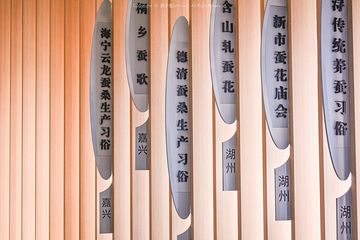 海宁云龙蚕桑生产习俗
嘉兴
桐乡蚕歌
嘉兴
德清蚕桑生产习俗
含山轧蚕花
湖州
新市蚕花庙会
湖州
浔传统养蚕习俗
湖州